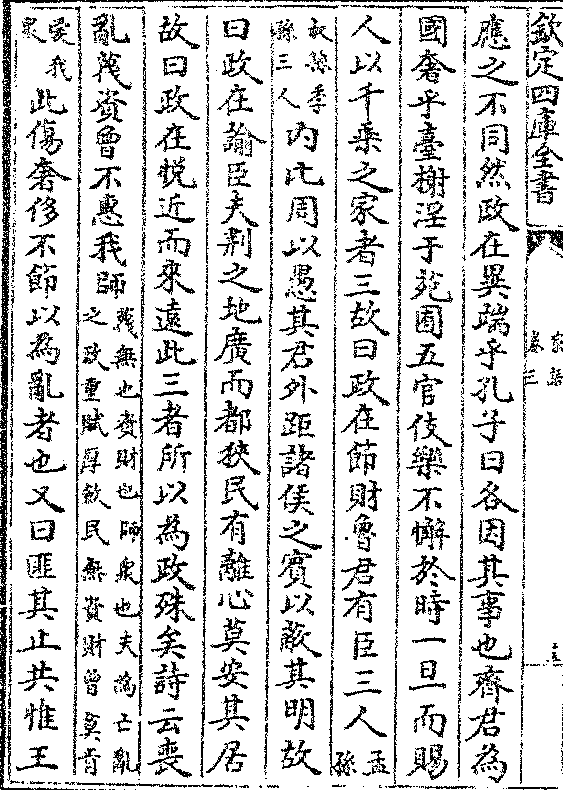 欽定四庫全書
家語
卷三
應之不同然政在異端乎孔子曰各因其事也齊君為
國奢乎臺榭淫于苑囿五官伎樂不懈於時一旦而賜
人以千乗之家者三故曰政在節財魯君有臣三人孟
孫
叔孫季
孫三人
内比周以愚其君外距諸侯之賔以蔽其明故
曰政在諭臣夫荆之地廣而都狹民有離心莫安其居
故曰政在悦近而來遠此三者所以為政殊矣詩云喪
亂蔑資曾不惠我師
蔑無也資財也師衆也夫為亡亂
之政重賦厚斂民無資財曾莫肯
愛我
衆
此傷奢侈不節以為亂者也又曰匪其止共惟王